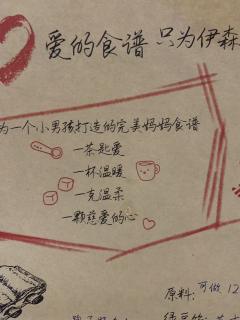 爱的食谱 只为伊森
为一个小男孩打造的完美妈妈食谱
一茶匙爱
一杯温暖
一克温柔
一颗慈爱的心
原料:可做12